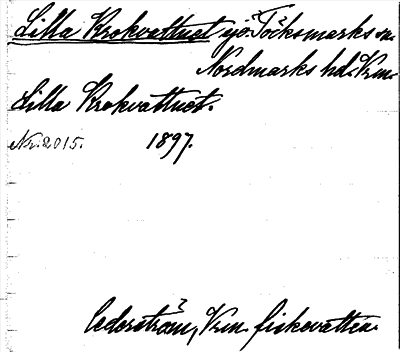 Lilla Krokvattnet sjö. Töcksmarks sn.
Nordmarks hd. Vrm.
Lilla Krokvattnet.
Nr. 2015. 1897.
Cederström, Vrm. fiskevatten.